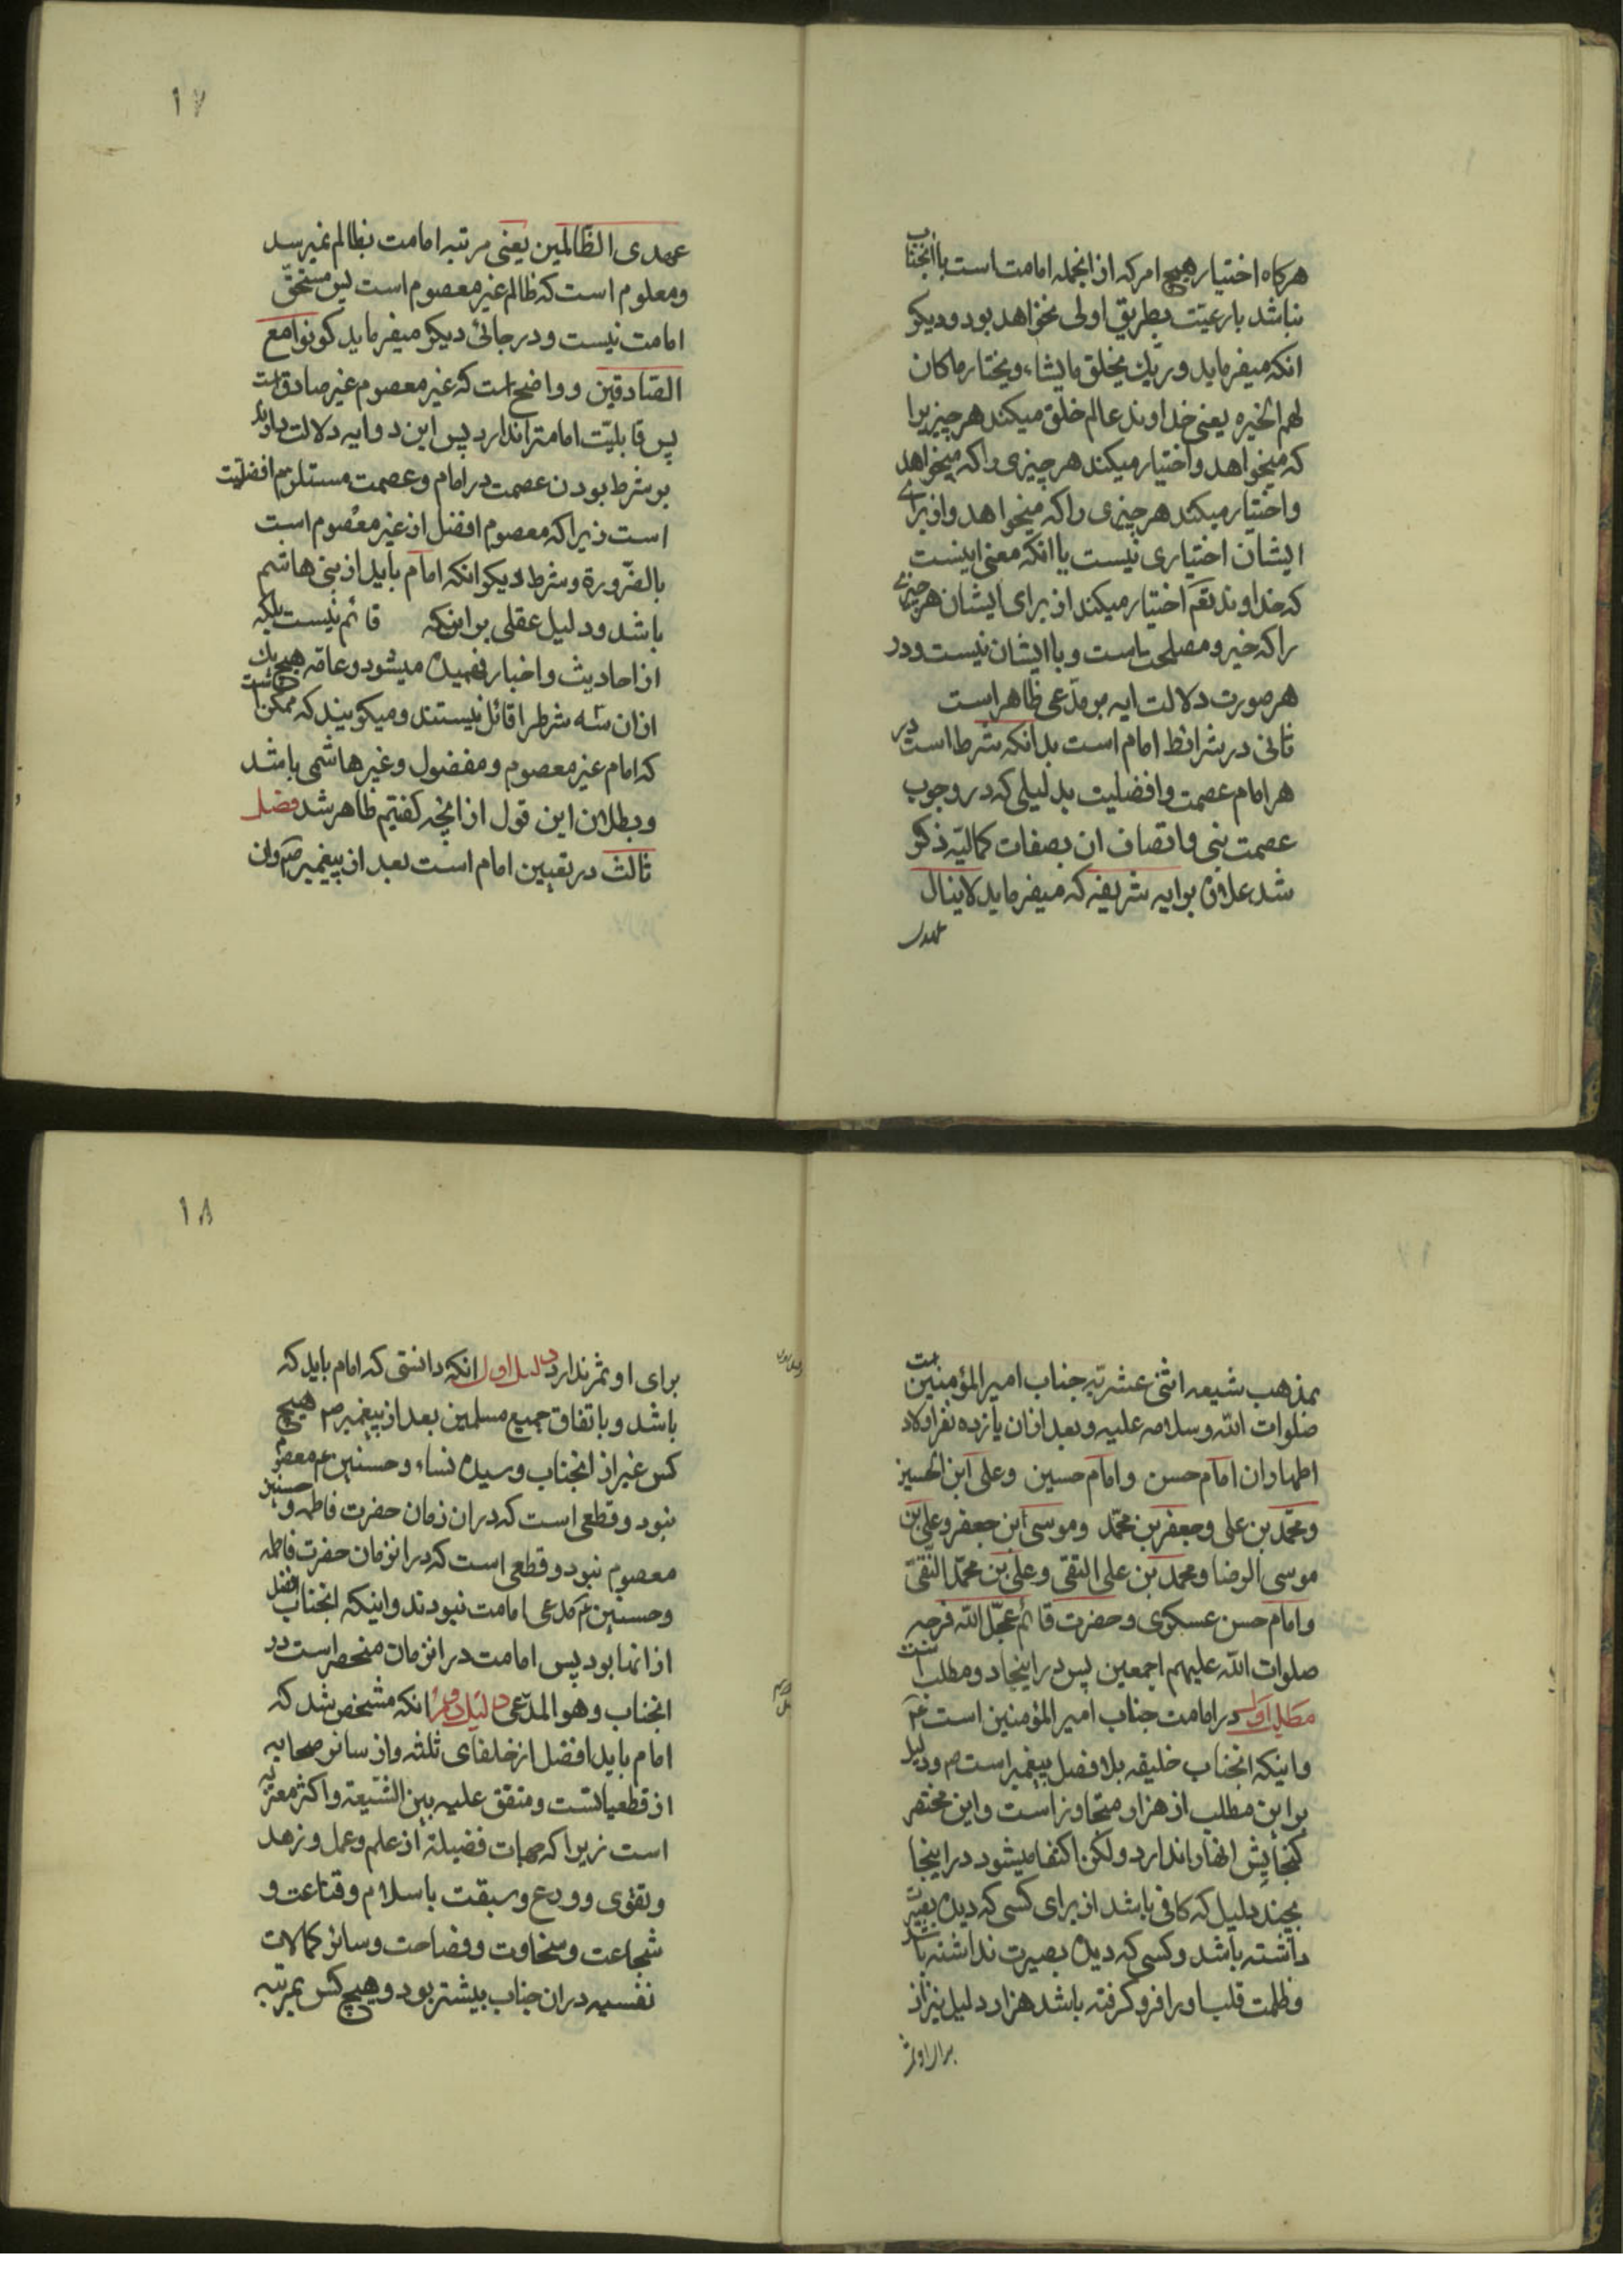 هرکاه اختیار هیچ امر که ازانجمله امامت است باانجناب
نباشد بارعیّت بطریق اولی نخواهد بود و دیکر
انکه میفرماید وربّک یخلق مایشاء ویختار ماکان
لهم الخیره یعنی خداوند عالم خلق میکند هر چیزیرا
که میخواهد واختیار میکند هر چیزی راکه میخواهد
واختیار میکند هر چیزی راکه میخواهد واز برای
ایشان اختیاری نیست یاانکه معنی اینست
که خداوند تعم اختیار میکند از برای ایشان هر چیزی
راکه خیر و مصلحت است و باایشان نیست و در
هر صورت دلالت ایه بر مدّعی ظاهر است
ثانی در شرائط امام است بدانکه شرط است در
هر امام عصمت وافضلیت بدلیلی که در وجوب
عصمت نبی واتصاف ان بصفات کمالیّه ذکر
شد علاوه بر ایه شریفه که میفرماید لاینال
عهدی
۱۷
عهدی الظّالمین یعنی مرتبه امامت بظالم نمیرسد
ومعلوم است که ظالم غیر معصوم است پس مستحقّ
امامت نیست و در جائی دیکر میفرماید کونوا مع
الصّادقین و واضح است که غیر معصوم غیر صادق است
پس قابلیّت امامترا ندارد پس این دو ایه دلالت دارند
بر شرط بودن عصمت در امام و عصمت مستلزم افضلیّت
است زیراکه معصوم افضل از غیر معصوم است
بالضّرورة و شرط دیکر انکه امام باید از بنی هاشم
باشد و دلیل عقلی بر اینکه قائم نیست بلکه
از احادیث و اخبار فهمیده میشود و عامّه هیچ یک
ازان سه شرط را قائل نیستند و میکویند که ممکن است
که امام غیر معصوم و مفضول و غیر هاشمی باشد
و بطلان این قول از انچه کفتیم ظاهر شد فصل
ثالث در تعیین امام است بعد از پیغمبر ص وان
بمذهب شیعه اثنی عشریّه جناب امیرالمؤمنین است
صلوات الله وسلامه علیه و بعد ازان یازده نفر اولاد
اطهاران امام حسن و امام حسین وعلی ابن الحسین
ومحمّد بن علی وجعفر بن محمّد وموسی ابن جعفر وعلی بن
موسی الرضا ومحمد بن علی التقی وعلی بن محمّد النّقیّ
وامام حسن عسکری وحضرت قائم عجّل الله فرجه
صلوات الله علیهم اجمعین پس در اینجا دو مطلب است
مطلب اوّل در امامت جناب امیرالمؤمنین است ع
واینکه انجناب خلیفه بلافصل پیغمبر است ص و دلیل
بر این مطلب از هزار متجاوز است و این مختصر
کنجایش انها را ندارد ولکن اکتفا میشود در اینجا
بچند دلیل که کافی باشد از برای کسی که دیده بصیرت
داشته باشد و کسی که دیده بصیرت نداشته باشد
وظلمت قلب او را فرو کرفته باشد هزار دلیل نیز از
برای او ثمر
۱۸
برای او ثمر ندارد دلیل اول انکه دانستی که امام باید که
باشد و باتفاق جمیع مسلمین بعد از پیغمبر ص هیچ
کس غیر از انجناب و سیده نساء و حسنین ع معصوم
نبود و قطعی است که دران زمان حضرت فاطمه و حسنین
معصوم نبود و قطعی است که در انزمان حضرت فاطمه
وحسنین ع مدعی امامت نبودند و اینکه انجناب افضل
از انها بود پس امامت در انزمان منحصر است در
انجناب و هو المدّعی دلیل دویّم انکه مشخص شد که
امام باید افضل از خلفای ثلثه و از سائر صحابه
از قطعیاتست و متفق علیه بین الشّیعة و اکثر معتزله
است زیراکه جهات فضیلة از علم و عمل و زهد
وتقوی و ورع و سبقت باسلام و قناعت و
شجاعت و سخاوت و فصاحت و سائر کمالات
نفسیه دران جناب بیشتر بود و هیچ کس بمرتبه